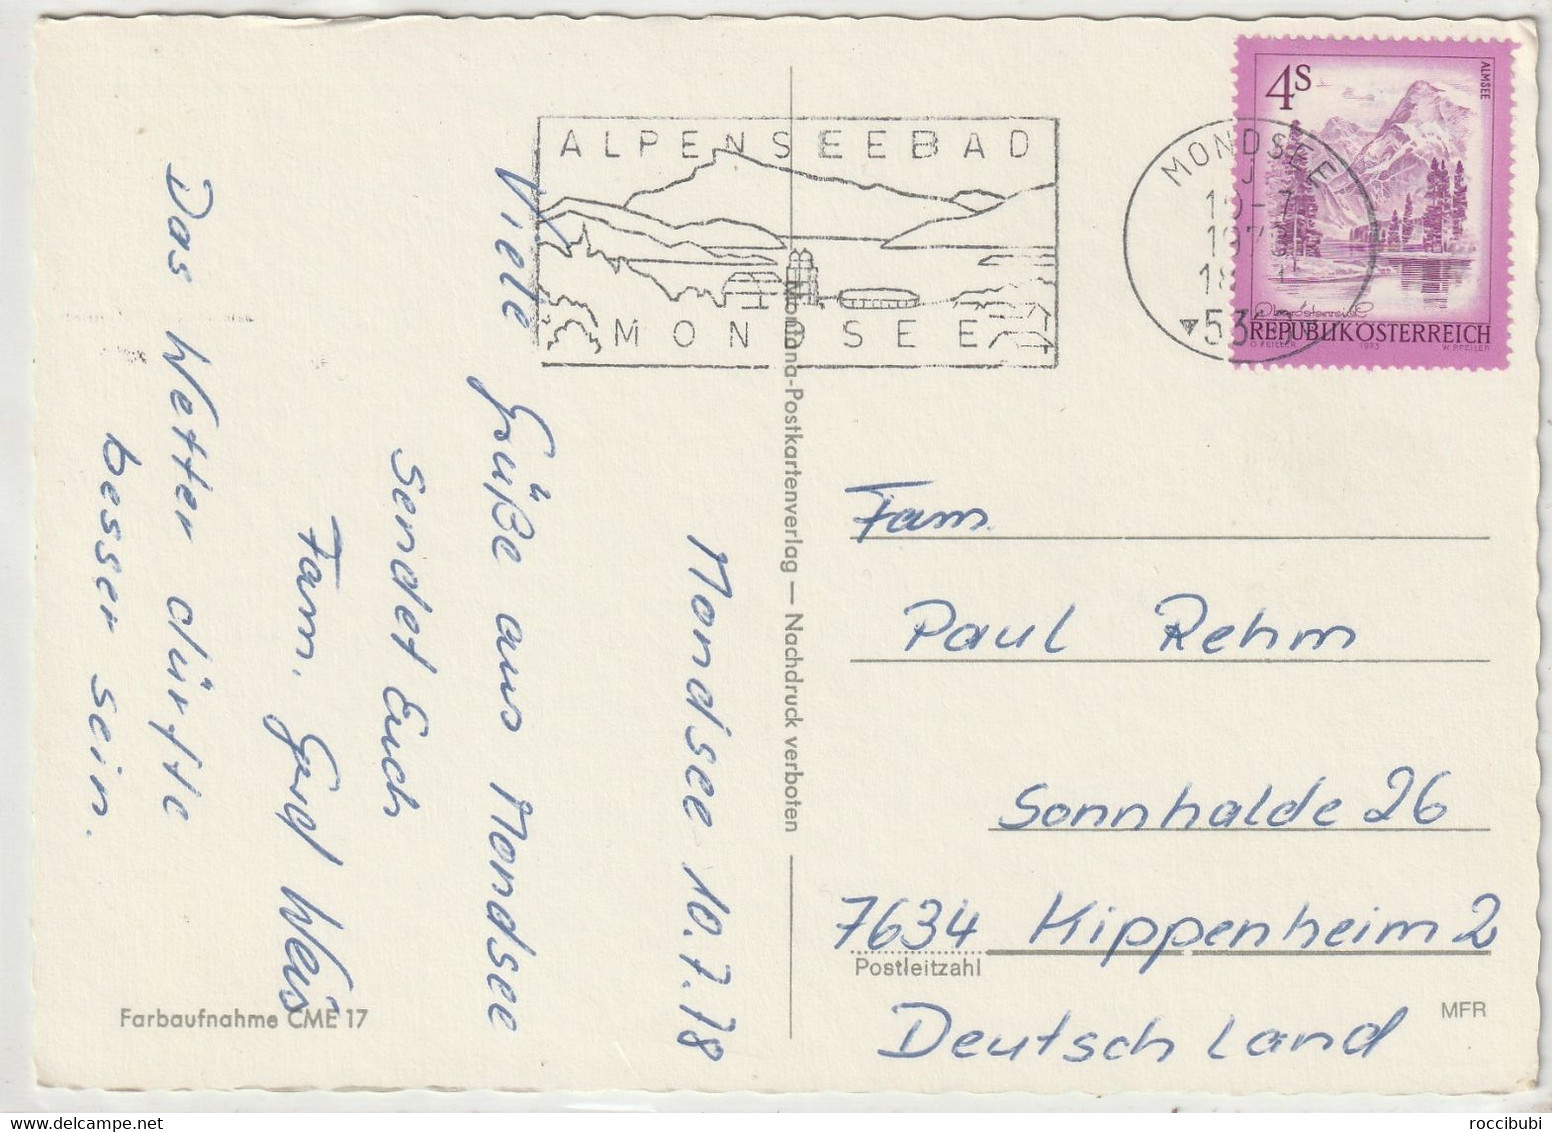 Mondsee 10.7.78
Viele Grüße aus Mondsee
sendet Euch
Fam. Gerd Weis
Das Wetter dürfte
besser sein.
Farbaufnahme CME 17
Mondna-Postkartenverlag — Nachdruck verboten
ALPENSEEBAD
MONDSEE
MONDSEE
18
4S
ALMSEE
REPUBLIK ÖSTERREICH
1973
Fam.
Paul Rehm
Sonnhalde 26
7634 Kippenheim 2
Postleitzahl
MFR
Deutschland
roccibubi